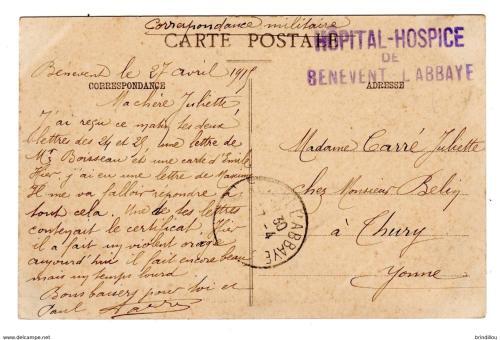 Correspondance militaire
CARTE POSTALE
HOPITAL-HOSPICE
DE
BENEVENT L'ABBAYE
Benevent le 27 avril 1915
CORRESPONDANCE
ADRESSE
Ma chère Juliette
J'ai reçu ce matin tes deux
lettres des 24 et 25, une lettre de
Mr Boisseau et une carte d'Emile
Hier j'ai eu une lettre de Maxime
Il me va falloir répondre à
tout cela. Une de tes lettres
contenait le certificat. Hier
il a fait un violent orage
aujourd'hui il fait encore beau
mais un temps lourd
Bons baisers pour toi et
Paul
Madame Carré Juliette
chez Monsieur Belin
à Chury
Yonne
L'ABBAYE
30
-4
www.delcampe.net
brindilou